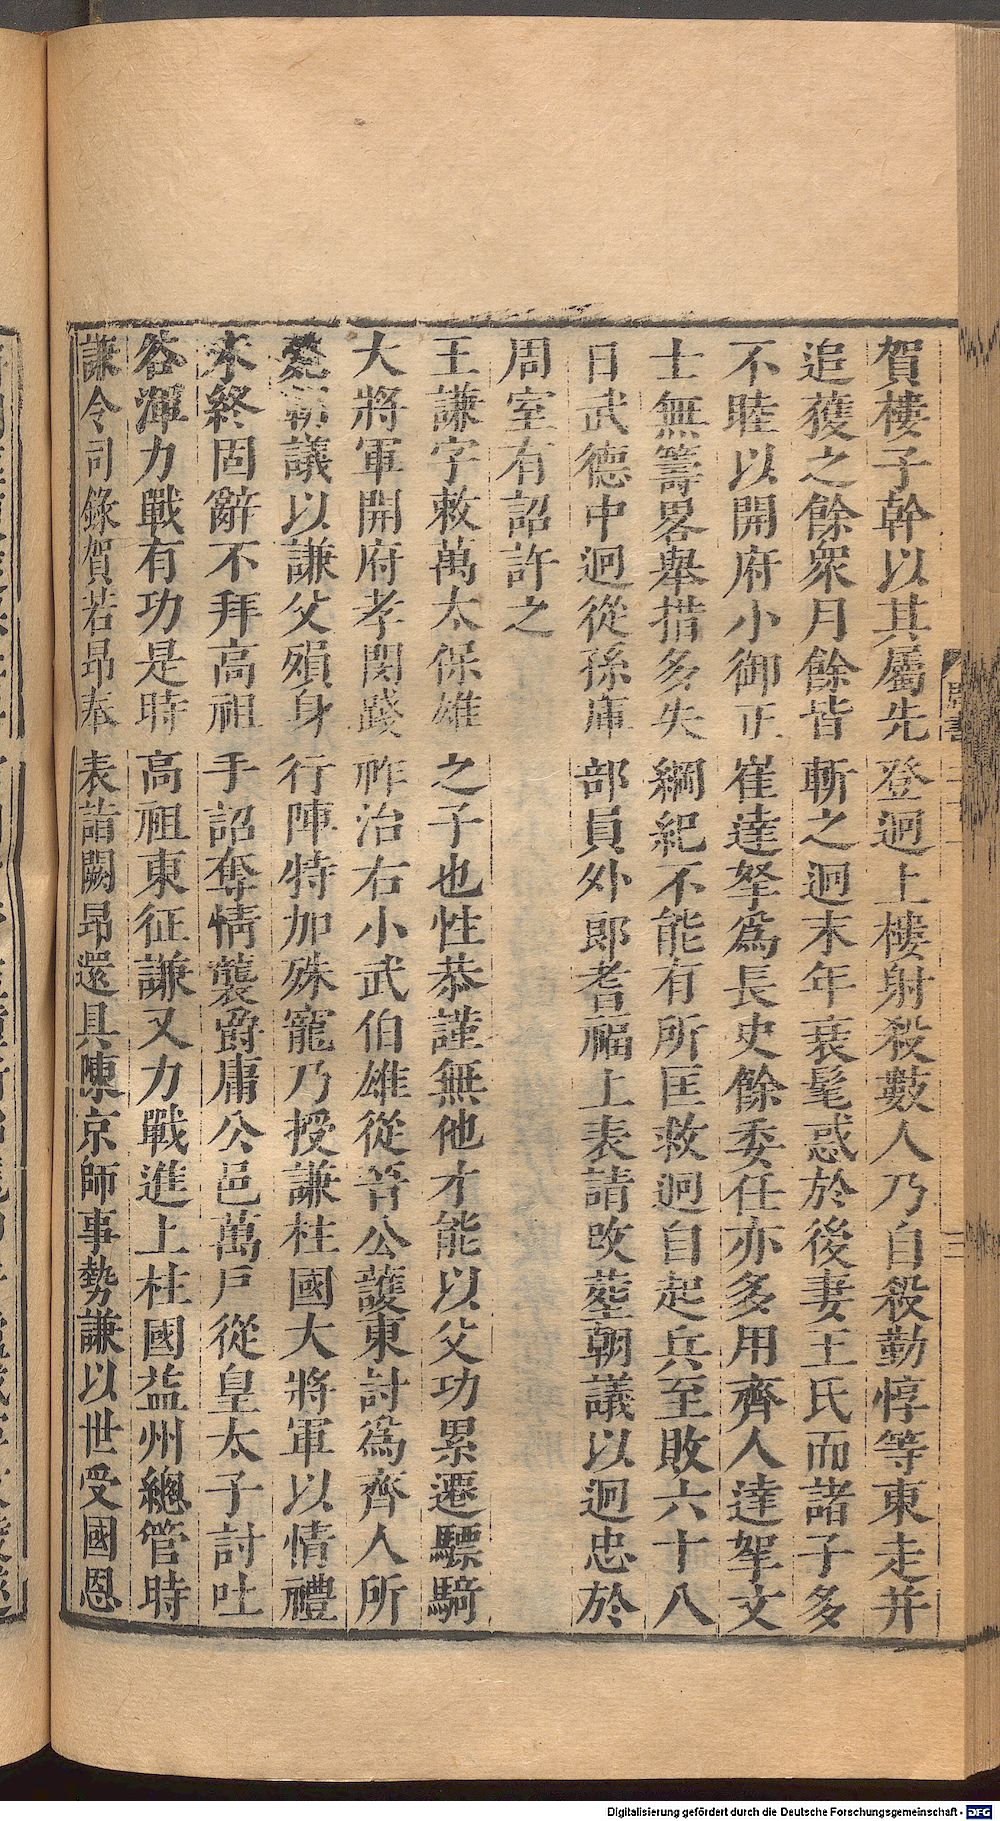 賀樓子幹以其屬先登迥上樓射殺數人乃自殺勤惇等東走并
追獲之餘衆月餘皆斬之迥末年衰髦惑於後妻王氏而諸子多
不睦以開府小御正崔達拏爲長史餘委任亦多用齊人達拏文
士無籌畧舉措多失綱紀不能有所匡救迥自起兵至敗六十八
日武德中迥從孫庫部員外郎耆福上表請改塟朝議以迥忠於
周室有詔許之
王謙字敕萬太保雄之子也性恭謹無他才能以父功累遷驃騎
大將軍開府孝閔踐祚治右小武伯雄從晉公護東討爲齊人所
斃朝議以謙父殞身行陣特加殊寵乃授謙柱國大將軍以情禮
未終固辭不拜高祖手詔奪情襲爵庸公邑萬戶從皇太子討吐
谷渾力戰有功是時高祖東征謙又力戰進上柱國益州總管時
謙令司錄賀若昂奉表詣闕昂還具陳京師事勢謙以世受國恩
Digitalisierung gefördert durch die Deutsche Forschungsgemeinschaft - DFG